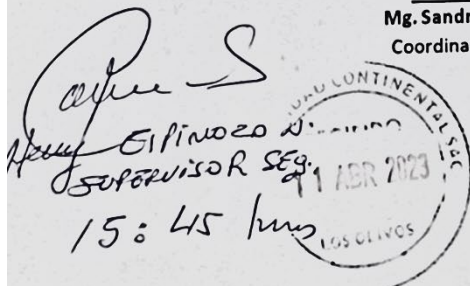 Mg. Sandr
Coordina
ESPINOZA N.
SUPERVISOR SEG.
15:45 hrs
DAD CONTINENTAL SAC
11 ABR 2023
LOS OLIVOS